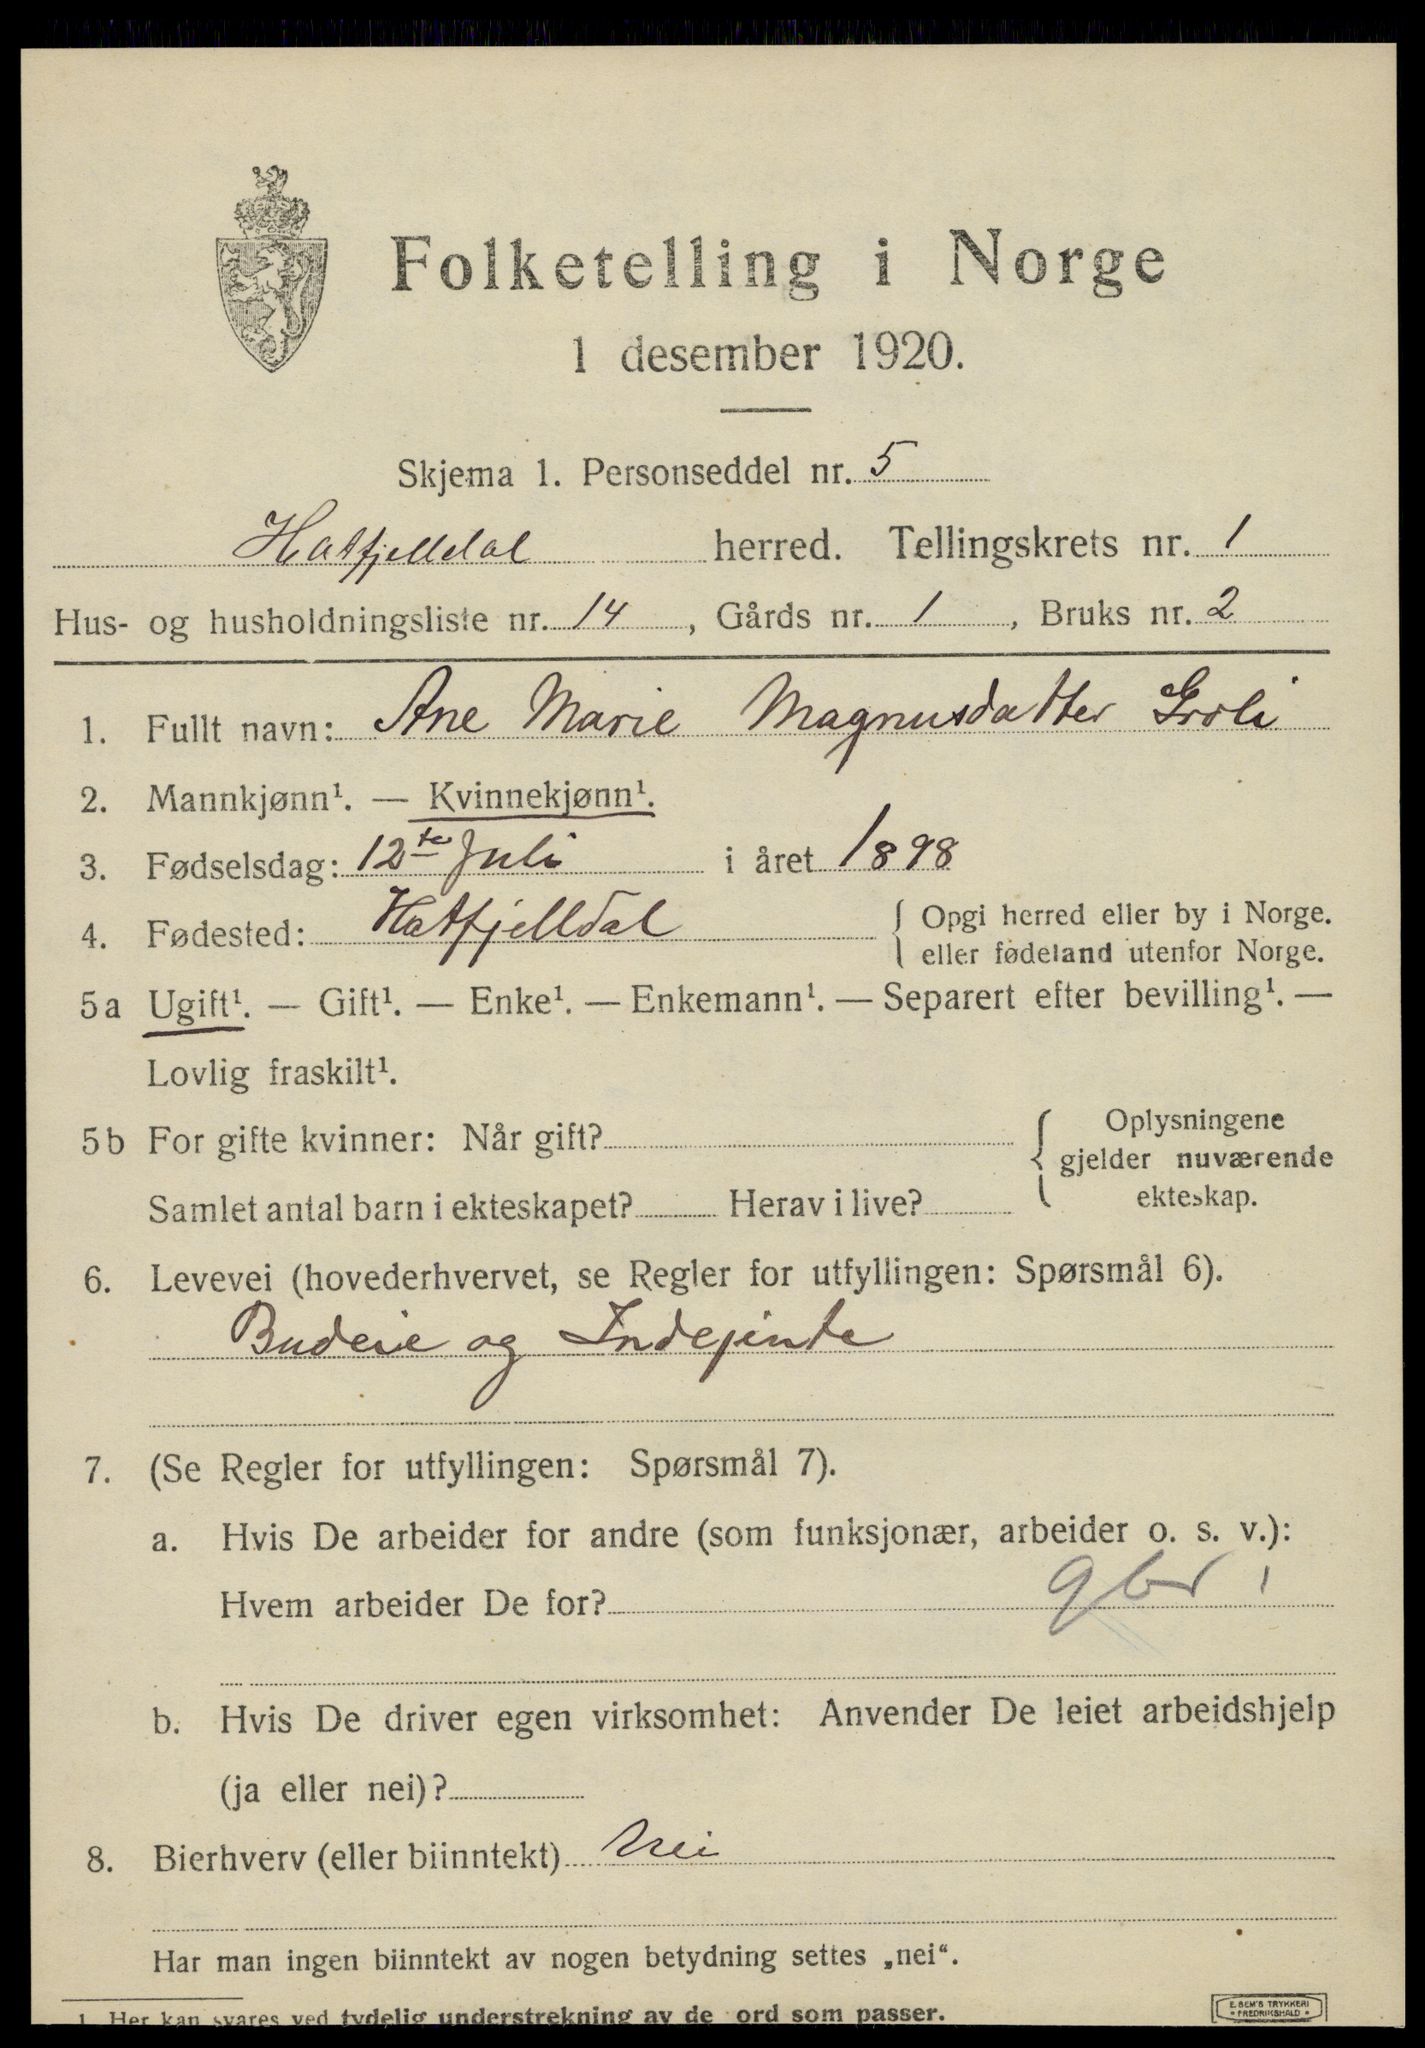 Folketelling i Norge
1 desember 1920.
Skjema 1. Personseddel nr. 5
Hatfjelldal herred. Tellingskrets nr. 1
Hus- og husholdningsliste nr. 14, Gårds nr. 1, Bruks nr. 2
1. Fullt navn: Ane Marie Magnusdatter Groli
2. Mannkjønn¹. — Kvinnekjønn¹.
3. Fødselsdag: 12te Juli i året 1898
4. Fødested: Hatfjelldal { Opgi herred eller by i Norge.
eller fødeland utenfor Norge.
5a Ugift¹. — Gift¹. — Enke¹. — Enkemann¹. — Separert efter bevilling¹. —
Lovlig fraskilt¹.
5b For gifte kvinner: Når gift? { Oplysningene
gjelder nuværende
Samlet antal barn i ekteskapet? Herav i live? ekteskap.
6. Levevei (hovederhvervet, se Regler for utfyllingen: Spørsmål 6).
Budeie og Indejente
7. (Se Regler for utfyllingen: Spørsmål 7).
a. Hvis De arbeider for andre (som funksjonær, arbeider o. s. v.):
Hvem arbeider De for? gbr 1
b. Hvis De driver egen virksomhet: Anvender De leiet arbeidshjelp
(ja eller nei)?
8. Bierhverv (eller biinntekt) Nei
Har man ingen biinntekt av nogen betydning settes „nei“.
1. Her kan svares ved tydelig understrekning av de ord som passer.
E. SEM'S TRYKKERI
• FREDRIKSHALD •